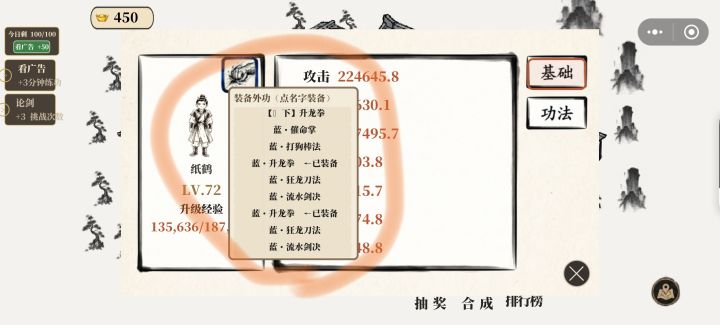 450
今日剩 100/100
看广告 +50
看广告
+3分钟练功
论剑
+3 挑战次数
纸鹤
LV.72
升级经验
135,636/187,
装备外功（点名字装备）
【 下】升龙拳
蓝·催命掌
蓝·打狗棒法
蓝·升龙拳 ←已装备
蓝·狂龙刀法
蓝·流水剑决
蓝·升龙拳 ←已装备
蓝·狂龙刀法
蓝·流水剑决
攻击 224645.8
630.1
7495.7
03.8
15.7
74.8
48.8
基础
功法
抽奖 合成 排行榜